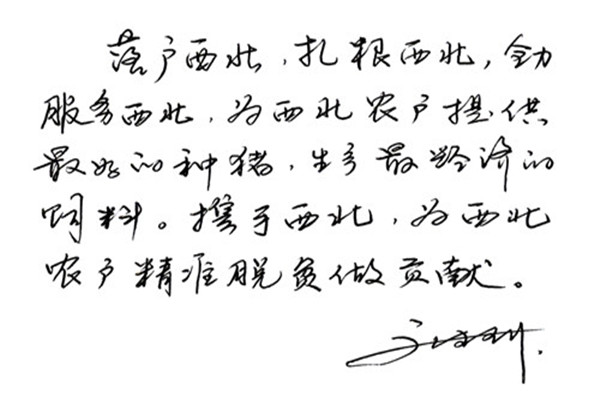 落户西北,扎根西北,全力
服务西北,为西北农户提供
最好的种猪,生产最经济的
饲料。携手西北,为西北
农户精准脱贫做贡献。